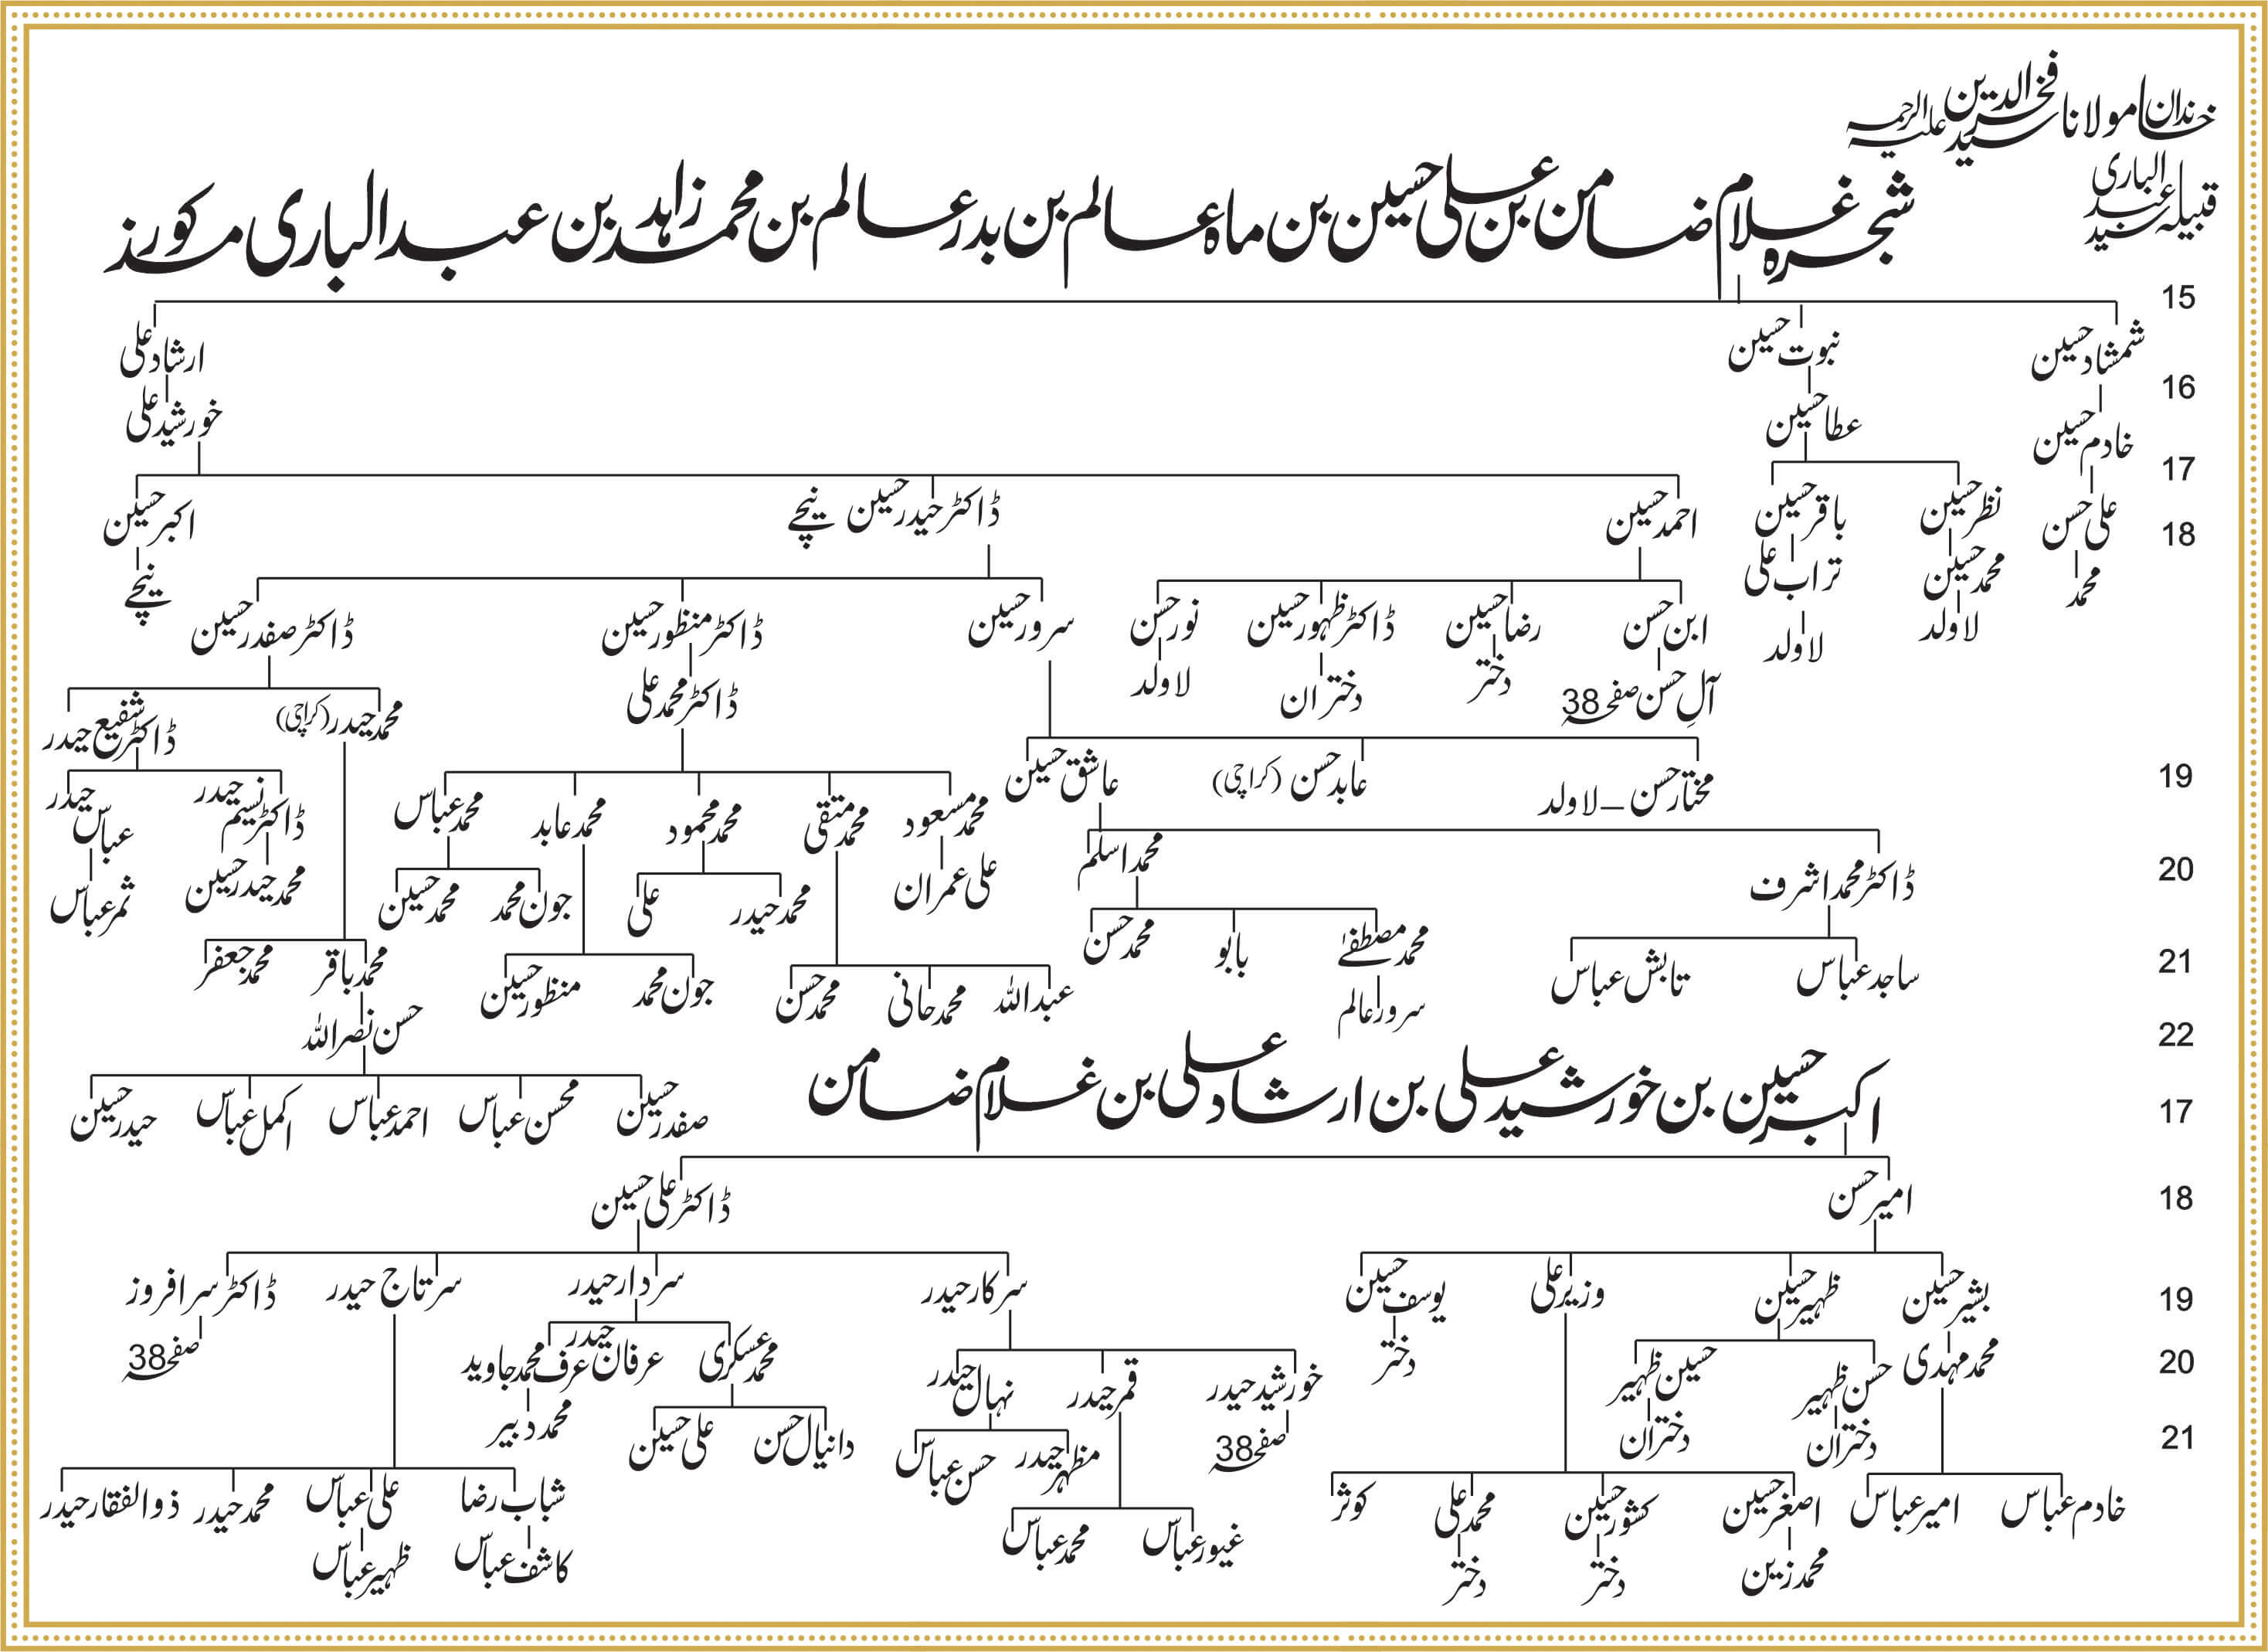 خاندان مولانا سید فخرالدین علیہ الرحمہ
قبیلہ سید عبدالباری
شجرہ غلام ضامن بن علی حسین بن ماہ عالم بن بدر عالم بن محمد زاہد بن عبدالباری مذکور
15
شمشاد حسین نبوت حسین ارشاد علی
16
خادم حسین عطا حسین خورشید علی
17
علی حسن نظر حسین باقر حسین احمد حسین ڈاکٹر حیدر حسین نیچے اکبر حسین
18
محمد محمد حسین تراب علی نیچے
لاولد لاولد
ابن حسن رضا حسین ڈاکٹر ظہور حسین نور حسن سرور حسین ڈاکٹر منظور حسین ڈاکٹر صفدر حسین
آل حسن صفحہ 38 دختر دختران لاولد ڈاکٹر محمد علی محمد حیدر (کراچی) ڈاکٹر شفیع حیدر
19
مختار حسن – لاولد عابد حسن (کراچی) عاشق حسین
محمد مسعود محمد متقی محمد محمود محمد عابد محمد عباس ڈاکٹر نسیم حیدر عباس حیدر
20
ڈاکٹر محمد اشرف محمد اسلم
علی عمران محمد حیدر علی جون محمد محمد حسین محمد حیدر حسین ثمر عباس
21
ساجد عباس تابش عباس محمد مصطفےٰ بابو محمد حسن
عبداللہ محمد ہانی محمد حسن جون محمد منظور حسین محمد باقر محمد جعفر
22
سرور عالم حسن نصر اللہ
صفدر حسین محسن عباس احمد عباس اکمل عباس حیدر حسین
17
اکبر حسین بن خورشید علی بن ارشاد علی بن غلام ضامن
18
امیر حسن ڈاکٹر علی حسین
19
بشیر حسین ظہیر حسین وزیر علی یوسف حسین سرکار حیدر سردار حیدر سرتاج حیدر ڈاکٹر سرافروز
20
محمد مہدی حسن ظہیر حسین ظہیر دختر خورشید حیدر قمر حیدر نہال حیدر محمد عسکری عرفان حیدر عرف محمد جاوید صفحہ 38
21
دختران دختران صفحہ 38 مظہر حیدر حسن عباس دانیال حسن علی حسین محمد دبیر
خادم عباس امیر عباس اصغر حسین کشور حسین محمد علی کوثر غیور عباس محمد عباس شباب رضا علی عباس محمد حیدر ذوالفقار حیدر
محمد زین دختر دختر کاشف عباس ظہیر عباس